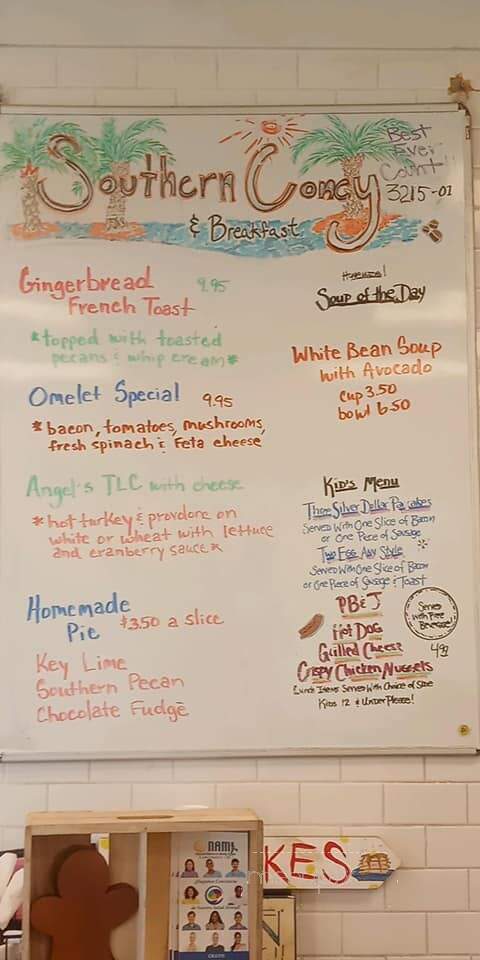 Southern Coney
& Breakfast
Best
Ever
Count!!
3215-01
Gingerbread 9.95
French Toast
*topped with toasted
pecans & whip cream*
Omelet Special 9.95
*bacon, tomatoes, mushrooms,
fresh spinach & Feta cheese
Angel's TLC with cheese
*hot turkey & provolone on
white or wheat with lettuce
and cranberry sauce*
Homemade
Pie $3.50 a slice
Key Lime
Southern Pecan
Chocolate Fudge
Homemade!
Soup of the Day
White Bean Soup
with Avocado
cup 3.50
bowl 6.50
Kid's Menu
Three Silver Dollar Pancakes
Served With One Slice of Bacon
or One Piece of Sausage
Two Egg Any Style
Served With One Slice of Bacon
or One Piece of Sausage & Toast
PB&J
Hot Dog
Grilled Cheese
Crispy Chicken Nuggets
Served
with Free
Beverage!
4.99
Lunch Items Served With Choice of Side
Kids 12 & Under Please!
NAMI
KES